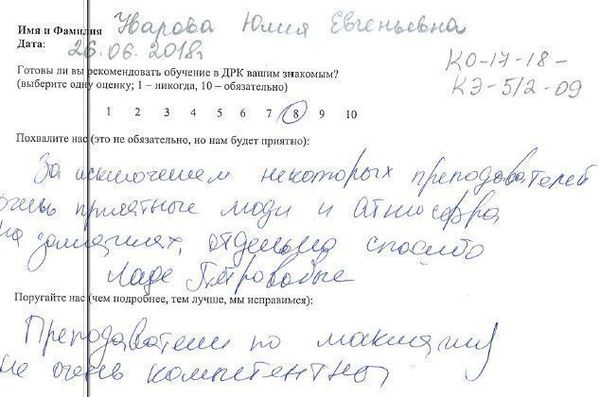 Имя и Фамилия Уварова Юлия Евгеньевна
Дата: 26.06.2018г
КО-17-18-
КЭ-5/2-09
Готовы ли вы рекомендовать обучение в ДРК вашим знакомым?
(выберите одну оценку; 1 – никогда, 10 – обязательно)
1 2 3 4 5 6 7 8 9 10
Похвалите нас (это не обязательно, но нам будет приятно):
За исключением некоторых преподавателей
очень приятные люди и атмосфера
на занятиях, отдельно спасибо
Ладе Петровне
Поругайте нас (чем подробнее, тем лучше, мы исправимся):
Преподаватели по макияжу
не очень компетентны